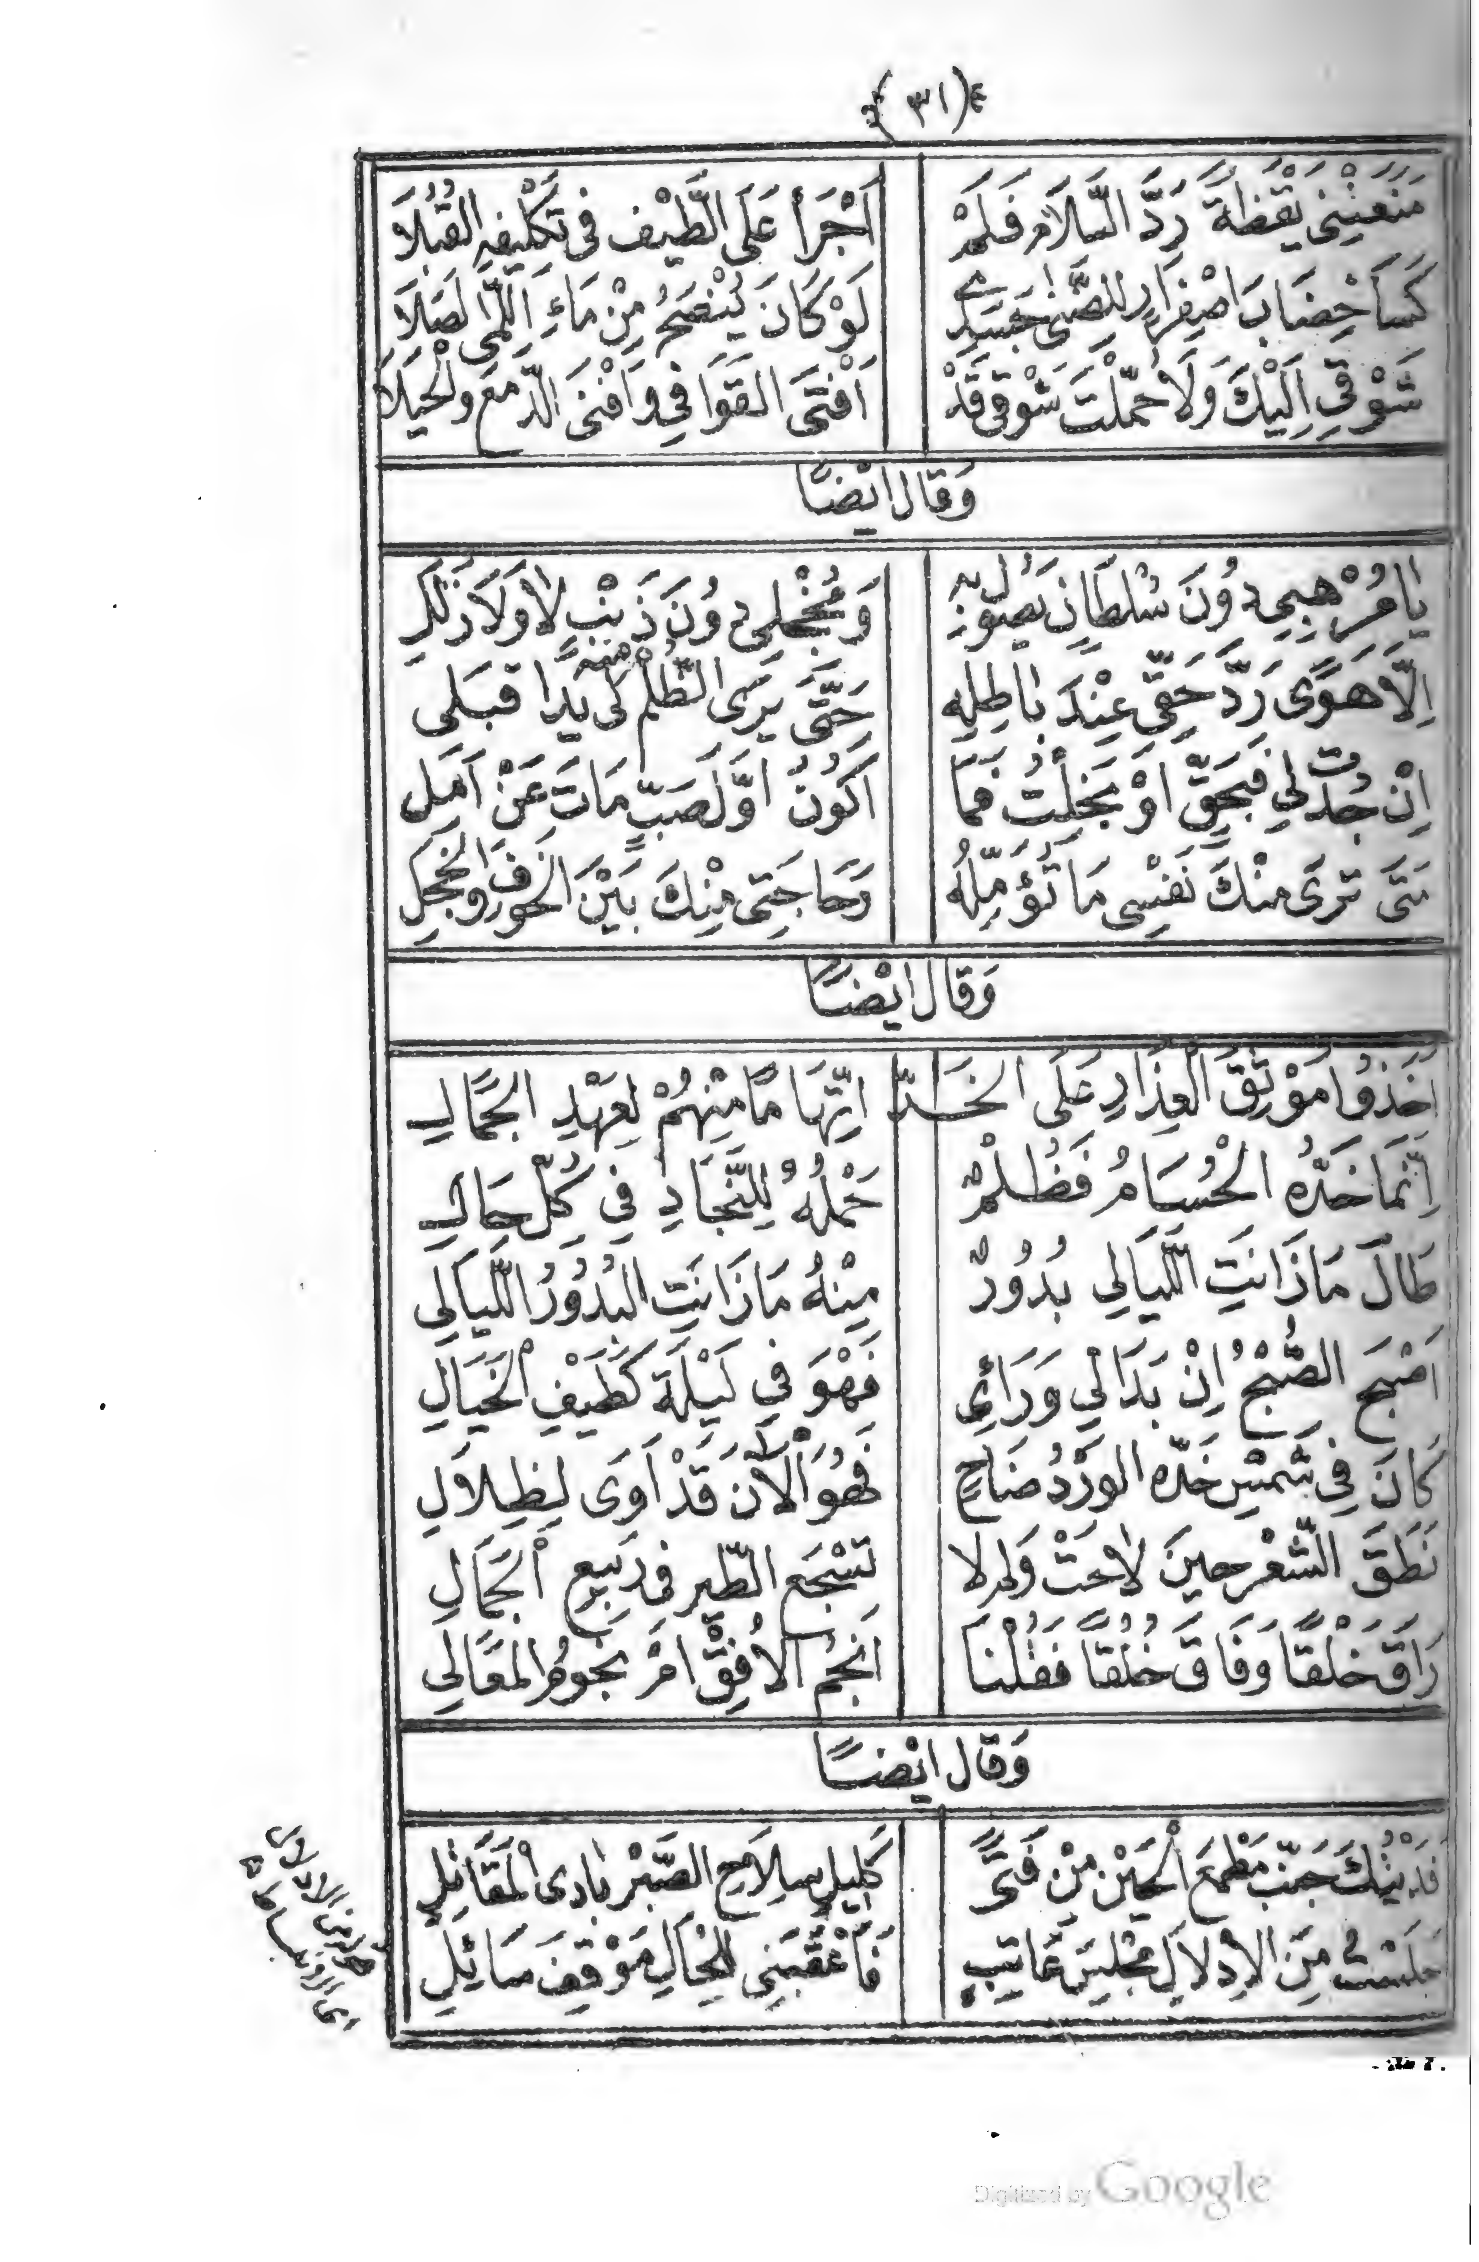 (٣١)
مَنَعْتِنِي يَقْظَةً رَدَّ السَّلَامِ فَلَمْ اَجْرَأْ عَلَى الطَّيْفِ فِي تَكْلِيفِهِ القُبَلَا
كَسَا خِضَابَ اصْفِرَارٍ لِلضَّنَى جَسَدِي لَوْ كَانَ يُنْعِمُ مِنْ مَاءِ اللَّمَى لَصَلَا
شَوْقِي اِلَيْكَ وَلَا حُمِّلْتَ شَوْقِي قَدْ اَفْنَى القَوَافِي وَاَفْنَى الدَّمْعَ وَالْحِيَلَا
وَقَالَ اَيْضًا
يَا مُرْهِبِي دُونَ سُلْطَانٍ يَصُولُ بِهِ وَمُخْجِلِي دُونَ ذَنْبٍ لَا وَلَا زَلَلِ
اِلَّا هَوًى رَدَّ حَقِّي عِنْدَ بَاطِلِهِ حَتَّى يَرَى الظُّلْمَ لِي مِنْهُ يَدًا قِبَلِي
اِنْ جُدْتَ لِي فَبِحَقٍّ اَوْ بَخِلْتَ فَمَا اَكُونُ اَوَّلَ صَبٍّ مَاتَ عَنْ اَمَلِ
مَتَى تَرَى مِنْكَ نَفْسِي مَا تُؤَمِّلُهُ وَحَاجَتِي مِنْكَ بَيْنَ الخَوْفِ وَالخَجَلِ
وَقَالَ اَيْضًا
اَخَذُوا مَوْثِقَ العِذَارِ عَلَى الخَدِّ اِنَّهَا مَا مِنْهُمْ لِعَهْدِ الجَمَالِ
اِنَّمَا خَدُّهُ الْحُسَامُ فَظُلْمٌ حَمْلُهُ لِلنِّجَادِ فِي كُلِّ حَالِ
طَالَ مَا زَانَتِ اللَّيَالِي بُدُورٌ مِنْهُ مَا زَانَتِ البُدُورُ اللَّيَالِي
اَصْبَحَ الصُّبْحُ اِنْ بَدَا لِي وَرَائِي فَهْوَ فِي لَيْلَةٍ كَطَيْفِ الْخَيَالِ
كَانَ فِي شَمْسِ خَدِّهِ الوَرْدُ ضَاحٍ فَهُوَ الْآنَ قَدْ اَوَى لِظِلَالِ
نَطَقَ الشِّعْرُ حِينَ لَاحَتْ وَلِمْ لَا تَسْجَعُ الطَّيْرُ فِي رَبِيعِ الْجَمَالِ
رَاقَ خَلْقًا وَفَاقَ خُلُقًا فَقُلْنَا اَنْجُمُ الْاُفْقِ اَمْ نُجُومُ المَعَالِي
وَقَالَ اَيْضًا
فَدَيْتُكَ جَنِّبْ مَطْمَعَ الْحَيْنِ مِنْ فَتًى كَلِيلِ سِلَاحِ الصَّبْرِ بَادِي الْمَقَاتِلِ
جَلَسْتَ لِي مِنَ الاِدْلَالِ مَجْلِسَ عَاتِبٍ فَاَعْقَبَنِي لِلْحَالِ مَوْقِفَ سَائِلِ
قوله من الادلال
اى الانبساط
Digitized by Google